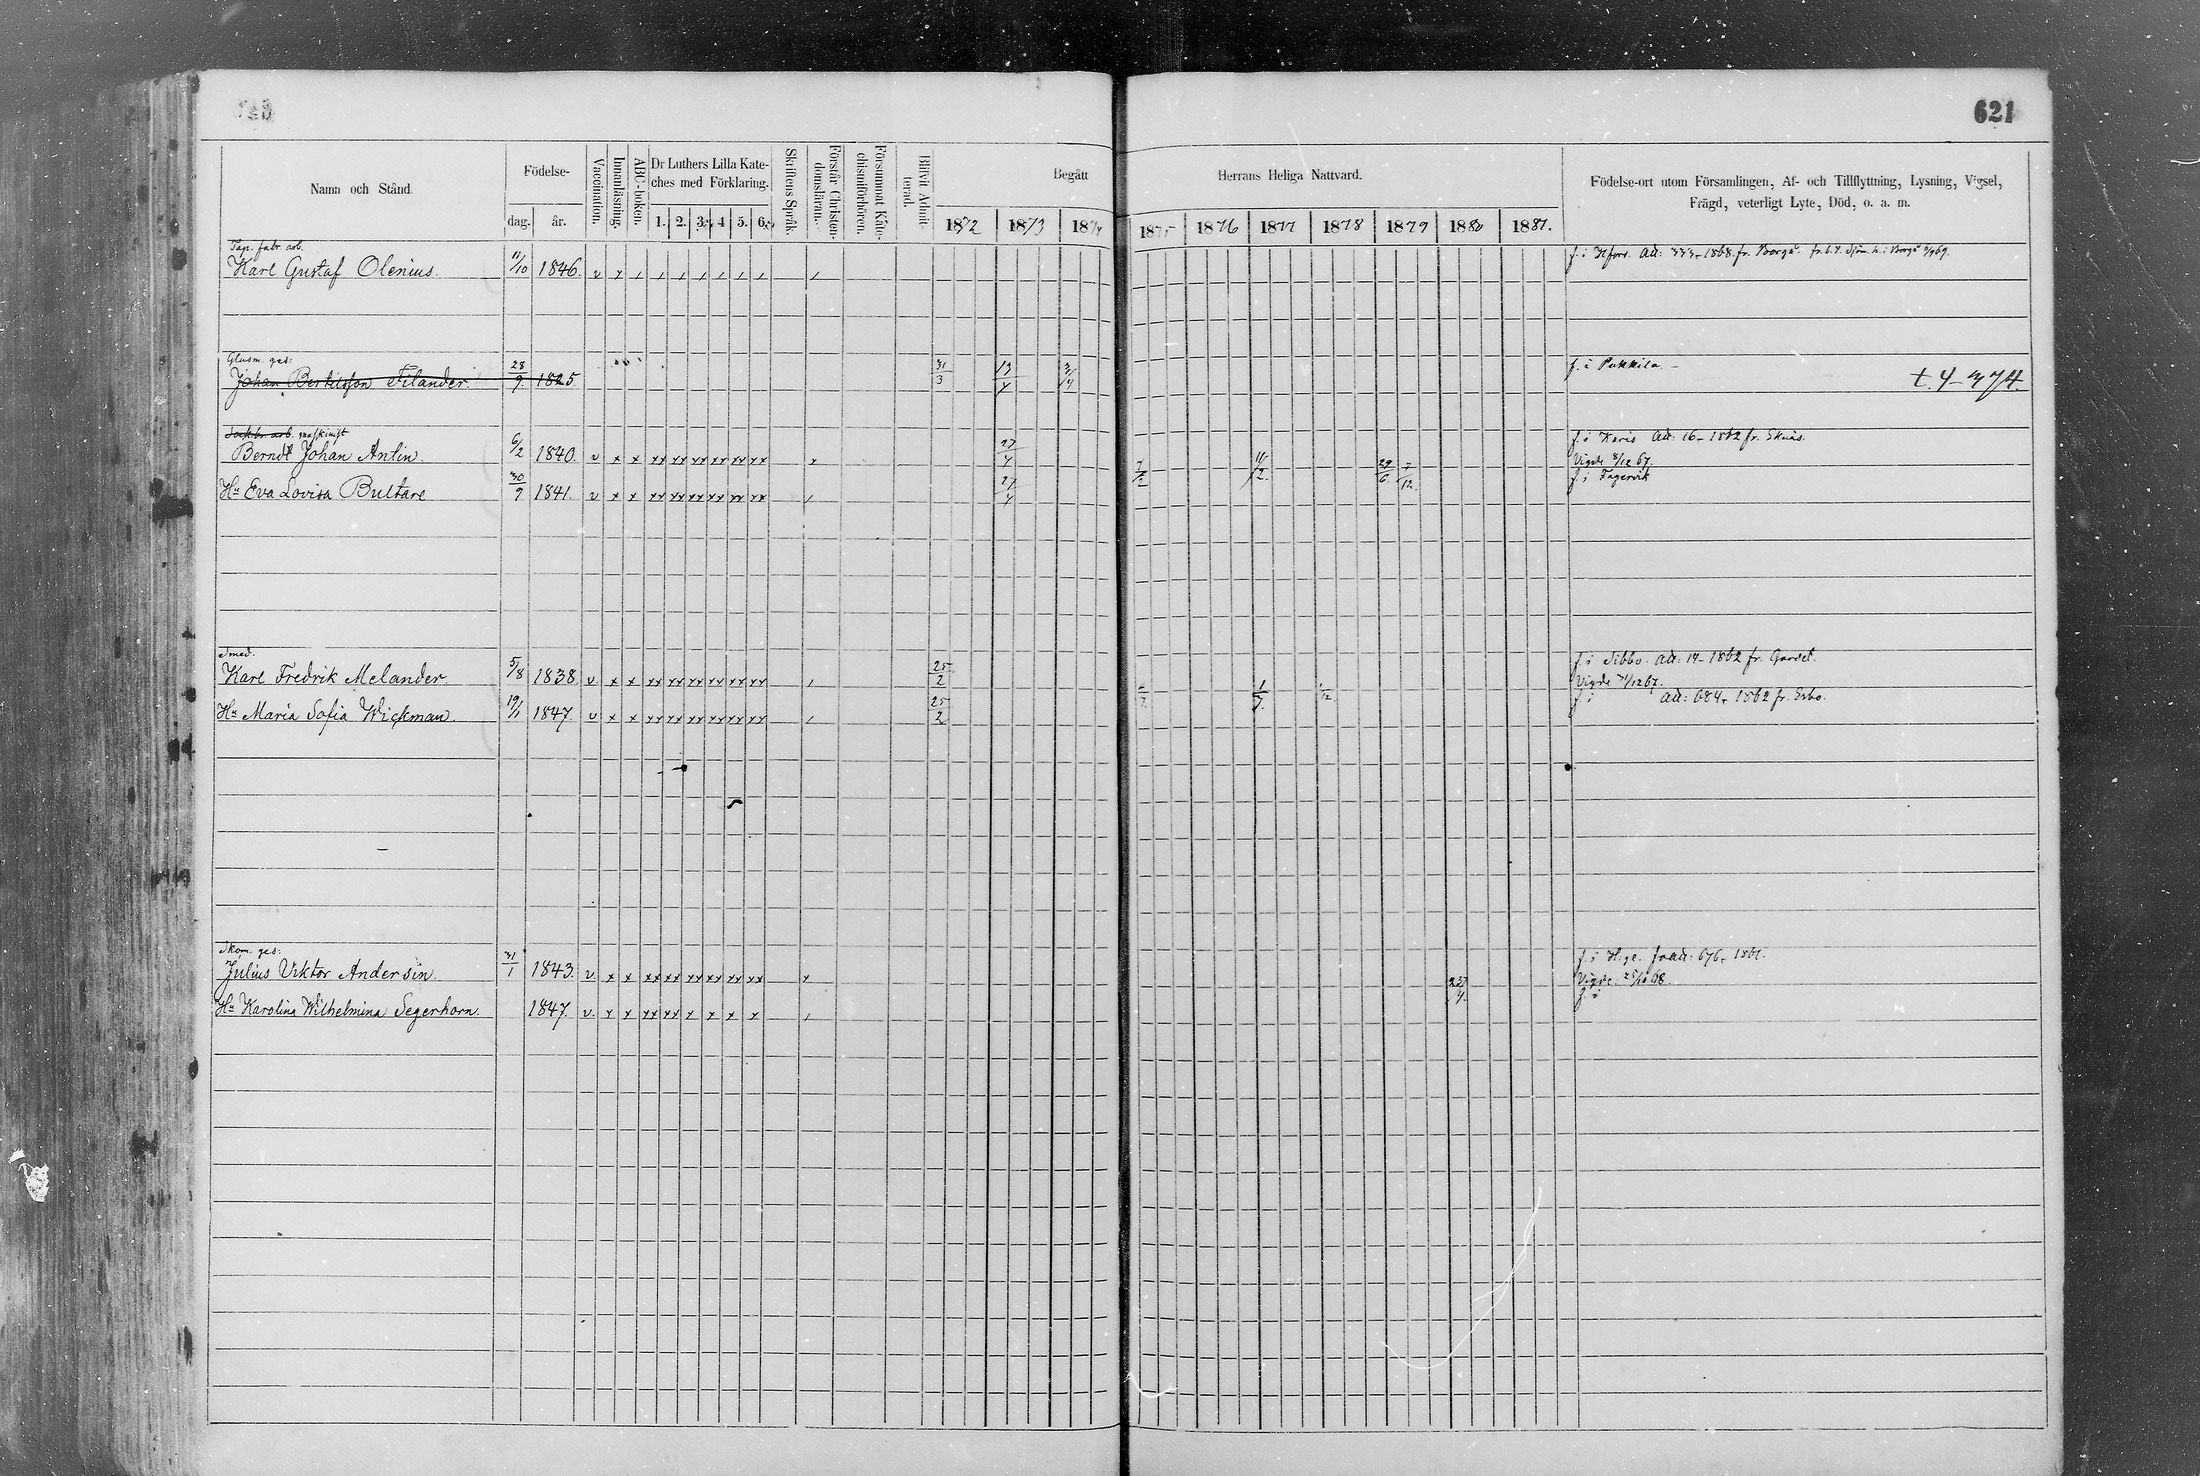 621
Namn och Stånd.
Födelse-
dag.
år.
Vaccination.
Innanläsning.
ABC-boken.
Dr Luthers Lilla Kate-
ches med Förklaring.
1. 2. 3. 4 5. 6.
Skriftens Språk.
Förstår Christen-
domsläran.
Försummat Kate-
chismiförhören.
Blifvit Admit-
terad.
Begått
Herrans Heliga Nattvard.
1872 1873 1874 1875 1876 1877 1878 1879 1880 1881.
Födelse-ort utom Församlingen, Af- och Tillflyttning, Lysning, Vigsel,
Frägd, veterligt Lyte, Död, o. a. m.
Tap. fabr. arb.
Karl Gustaf Olenius. 11/10 1846. v x
f. i Hfors. Att: 1868. fr. Borgå.
Glasm. ges:
Johan Bertilsson Filander. 28/9 1825. 31/3 13/4
f. i Pukkila.
t. 4-374.
arb. maskinist
Berndt Johan Antin. 6/2 1840. v x x xx xx xx xx xx xx 27/4 29/6 7/12
f. i Karis Att: 16-1862 fr. Eknäs.
Vigde 8/12 67.
Hu Eva Lovisa Bultare 30/9 1841. v x x xx xx xx xx xx xx 27/4
f. i Fagervik
Smed.
Karl Fredrik Melander. 5/8 1838. v x x xx xx xx xx xx xx 25/2
f. i Sibbo. Att: 14-1862 fr.
Vigde 31/12 67.
Hu Maria Sofia Wickman. 19/1 1847. v x x xx xx xx xx xx xx 25/2
f. i Att: 684-1862 fr. Esbo.
Skom. ges:
Julius Viktor Andersin. 31/1 1843. v x x xx xx xx xx xx xx
f. i H:ge. 676-1861.
Vigde: 68.
Hu Karolina Wilhelmina Segerhorn. 1847. v x x xx xx x x x x
f. i